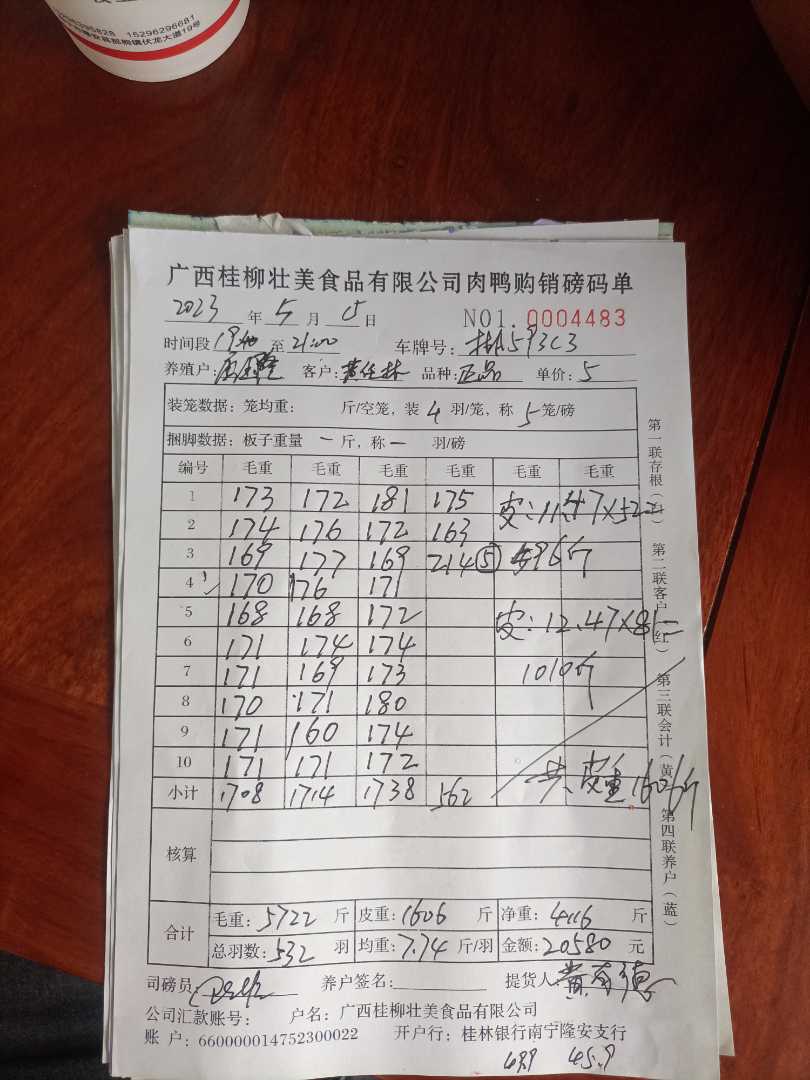 15296296681
镇伏龙大道19号
广西桂柳壮美食品有限公司肉鸭购销磅码单
2023 年 5 月 15 日 NO1. 0004483
时间段 19:40 至 21:00 车牌号: 593C3
养殖户: 客户: 黄任林 品种: 正品 单价: 5
装笼数据: 笼均重: 斤/空笼, 装 4 羽/笼, 称 5 笼/磅
捆脚数据: 板子重量 一 斤, 称 一 羽/磅
编号 毛重 毛重 毛重 毛重 毛重 毛重
1 173 172 181 175 皮: 11.47×52=
2 174 176 172 163
3 169 177 169 214 ⑤ 596斤
4 170 176 171
5 168 168 172 皮: 12.47×81=
6 171 174 174
7 171 169 173 1010斤
8 170 171 180
9 171 160 174
10 171 171 172
小计 1708 1714 1738 562 共皮重1606斤
核算
合计 毛重: 5722 斤 皮重: 1606 斤 净重: 4116 斤
总羽数: 532 羽 均重: 7.74 斤/羽 金额: 20580 元
司磅员: 养户签名: 提货人: 黄有德
公司汇款账号: 户名: 广西桂柳壮美食品有限公司
账 户: 660000014752300022 开户行: 桂林银行南宁隆安支行
45.9
第一联存根
第二联客户(红)
第三联会计(黄
第四联养户(蓝)